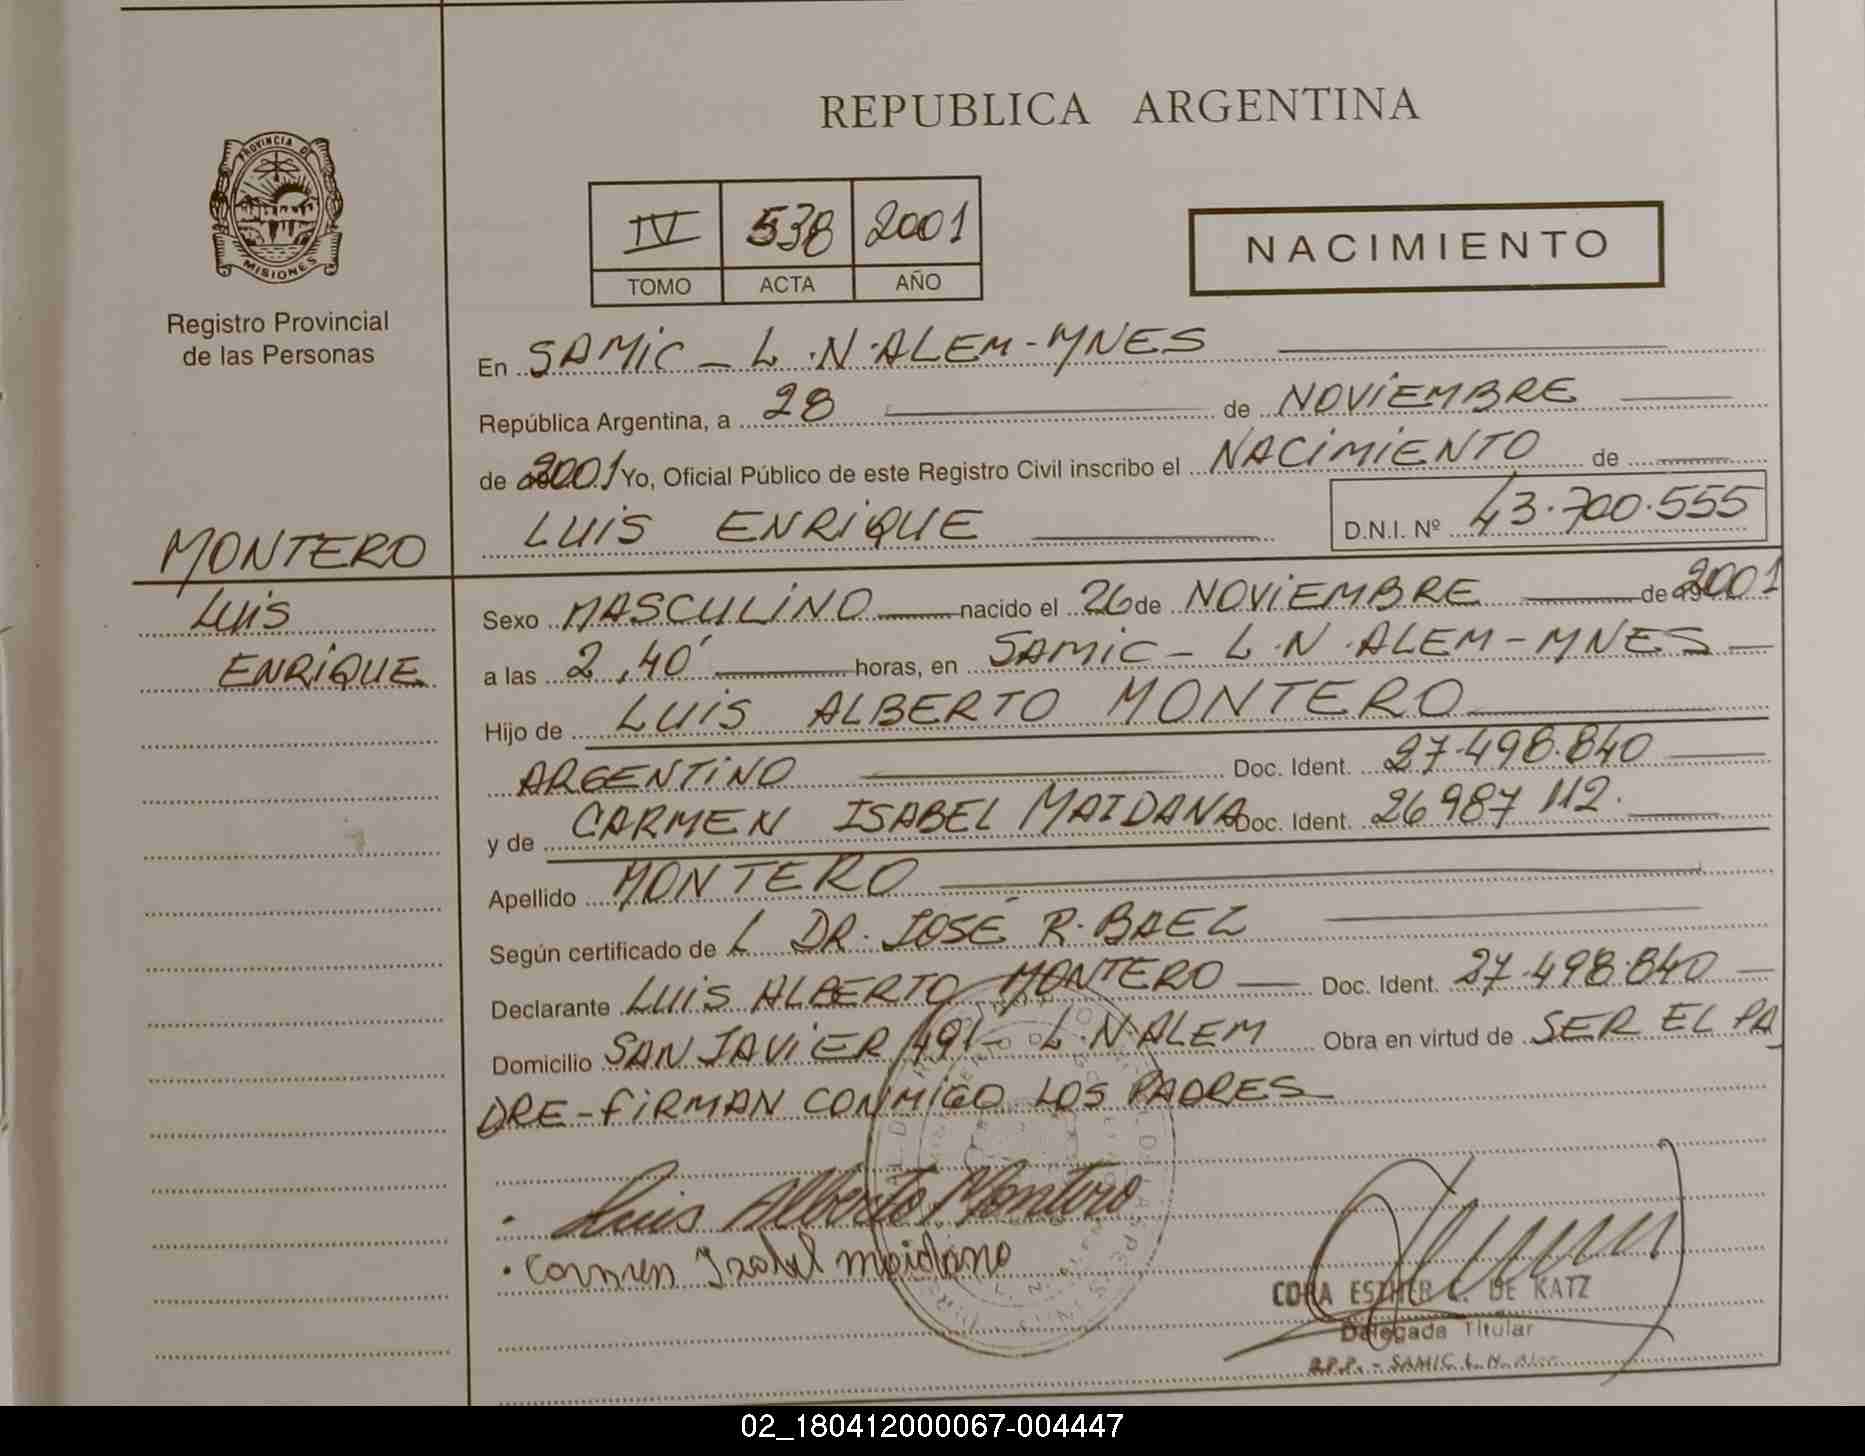 REPUBLICA ARGENTINA
PROVINCIA DE
MISIONES
Registro Provincial
de las Personas
IV 538 2001
TOMO ACTA AÑO
NACIMIENTO
En SAMIC - L.N.ALEM-MNES
República Argentina, a 28 de NOVIEMBRE
de 2001 Yo, Oficial Público de este Registro Civil inscribo el NACIMIENTO de
LUIS ENRIQUE D.N.I. Nº 43.700.555
MONTERO
LUIS
ENRIQUE
Sexo MASCULINO nacido el 26 de NOVIEMBRE de 2001
a las 2,40' horas, en SAMIC - L.N.ALEM-MNES
Hijo de LUIS ALBERTO MONTERO
ARGENTINO Doc. Ident. 27.498.840
y de CARMEN ISABEL MAIDANA Doc. Ident. 26987112.
Apellido MONTERO
Según certificado de L DR. JOSÉ R. BAEZ
Declarante LUIS ALBERTO MONTERO Doc. Ident. 27.498.840
Domicilio SAN JAVIER 491- L.N.ALEM Obra en virtud de SER EL PA
DRE-FIRMAN CONMIGO LOS PADRES
Luis Alberto Montero
Carmen Isabel maidana
CORA ESTHER DE KATZ
Delegada Titular
R.P.P. - SAMIC L.N. Alem
02_180412000067-004447